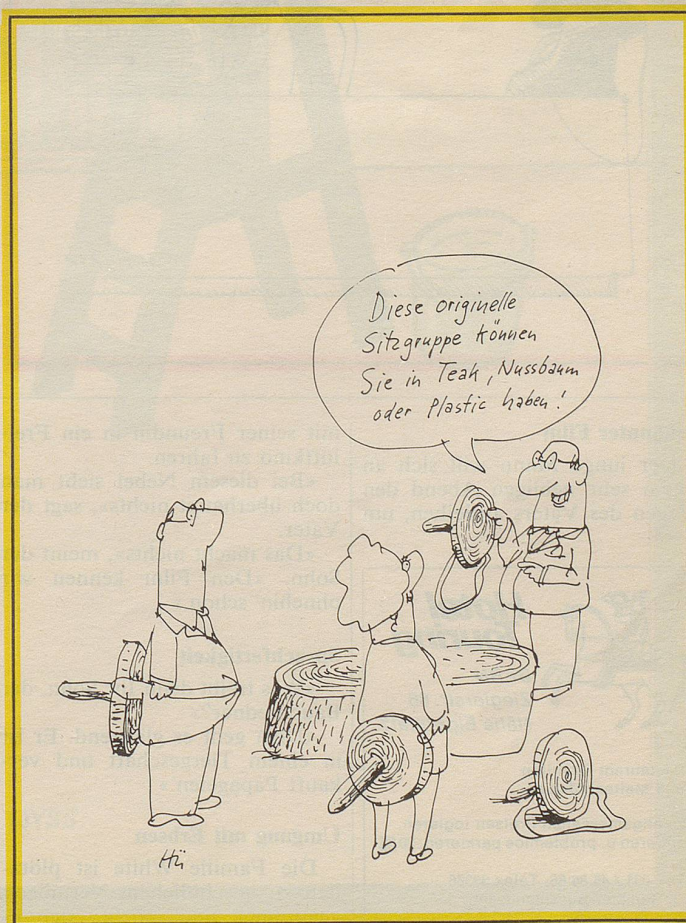 Diese originelle
Sitzgruppe können
Sie in Teak, Nussbaum
oder Plastic haben!
Hü